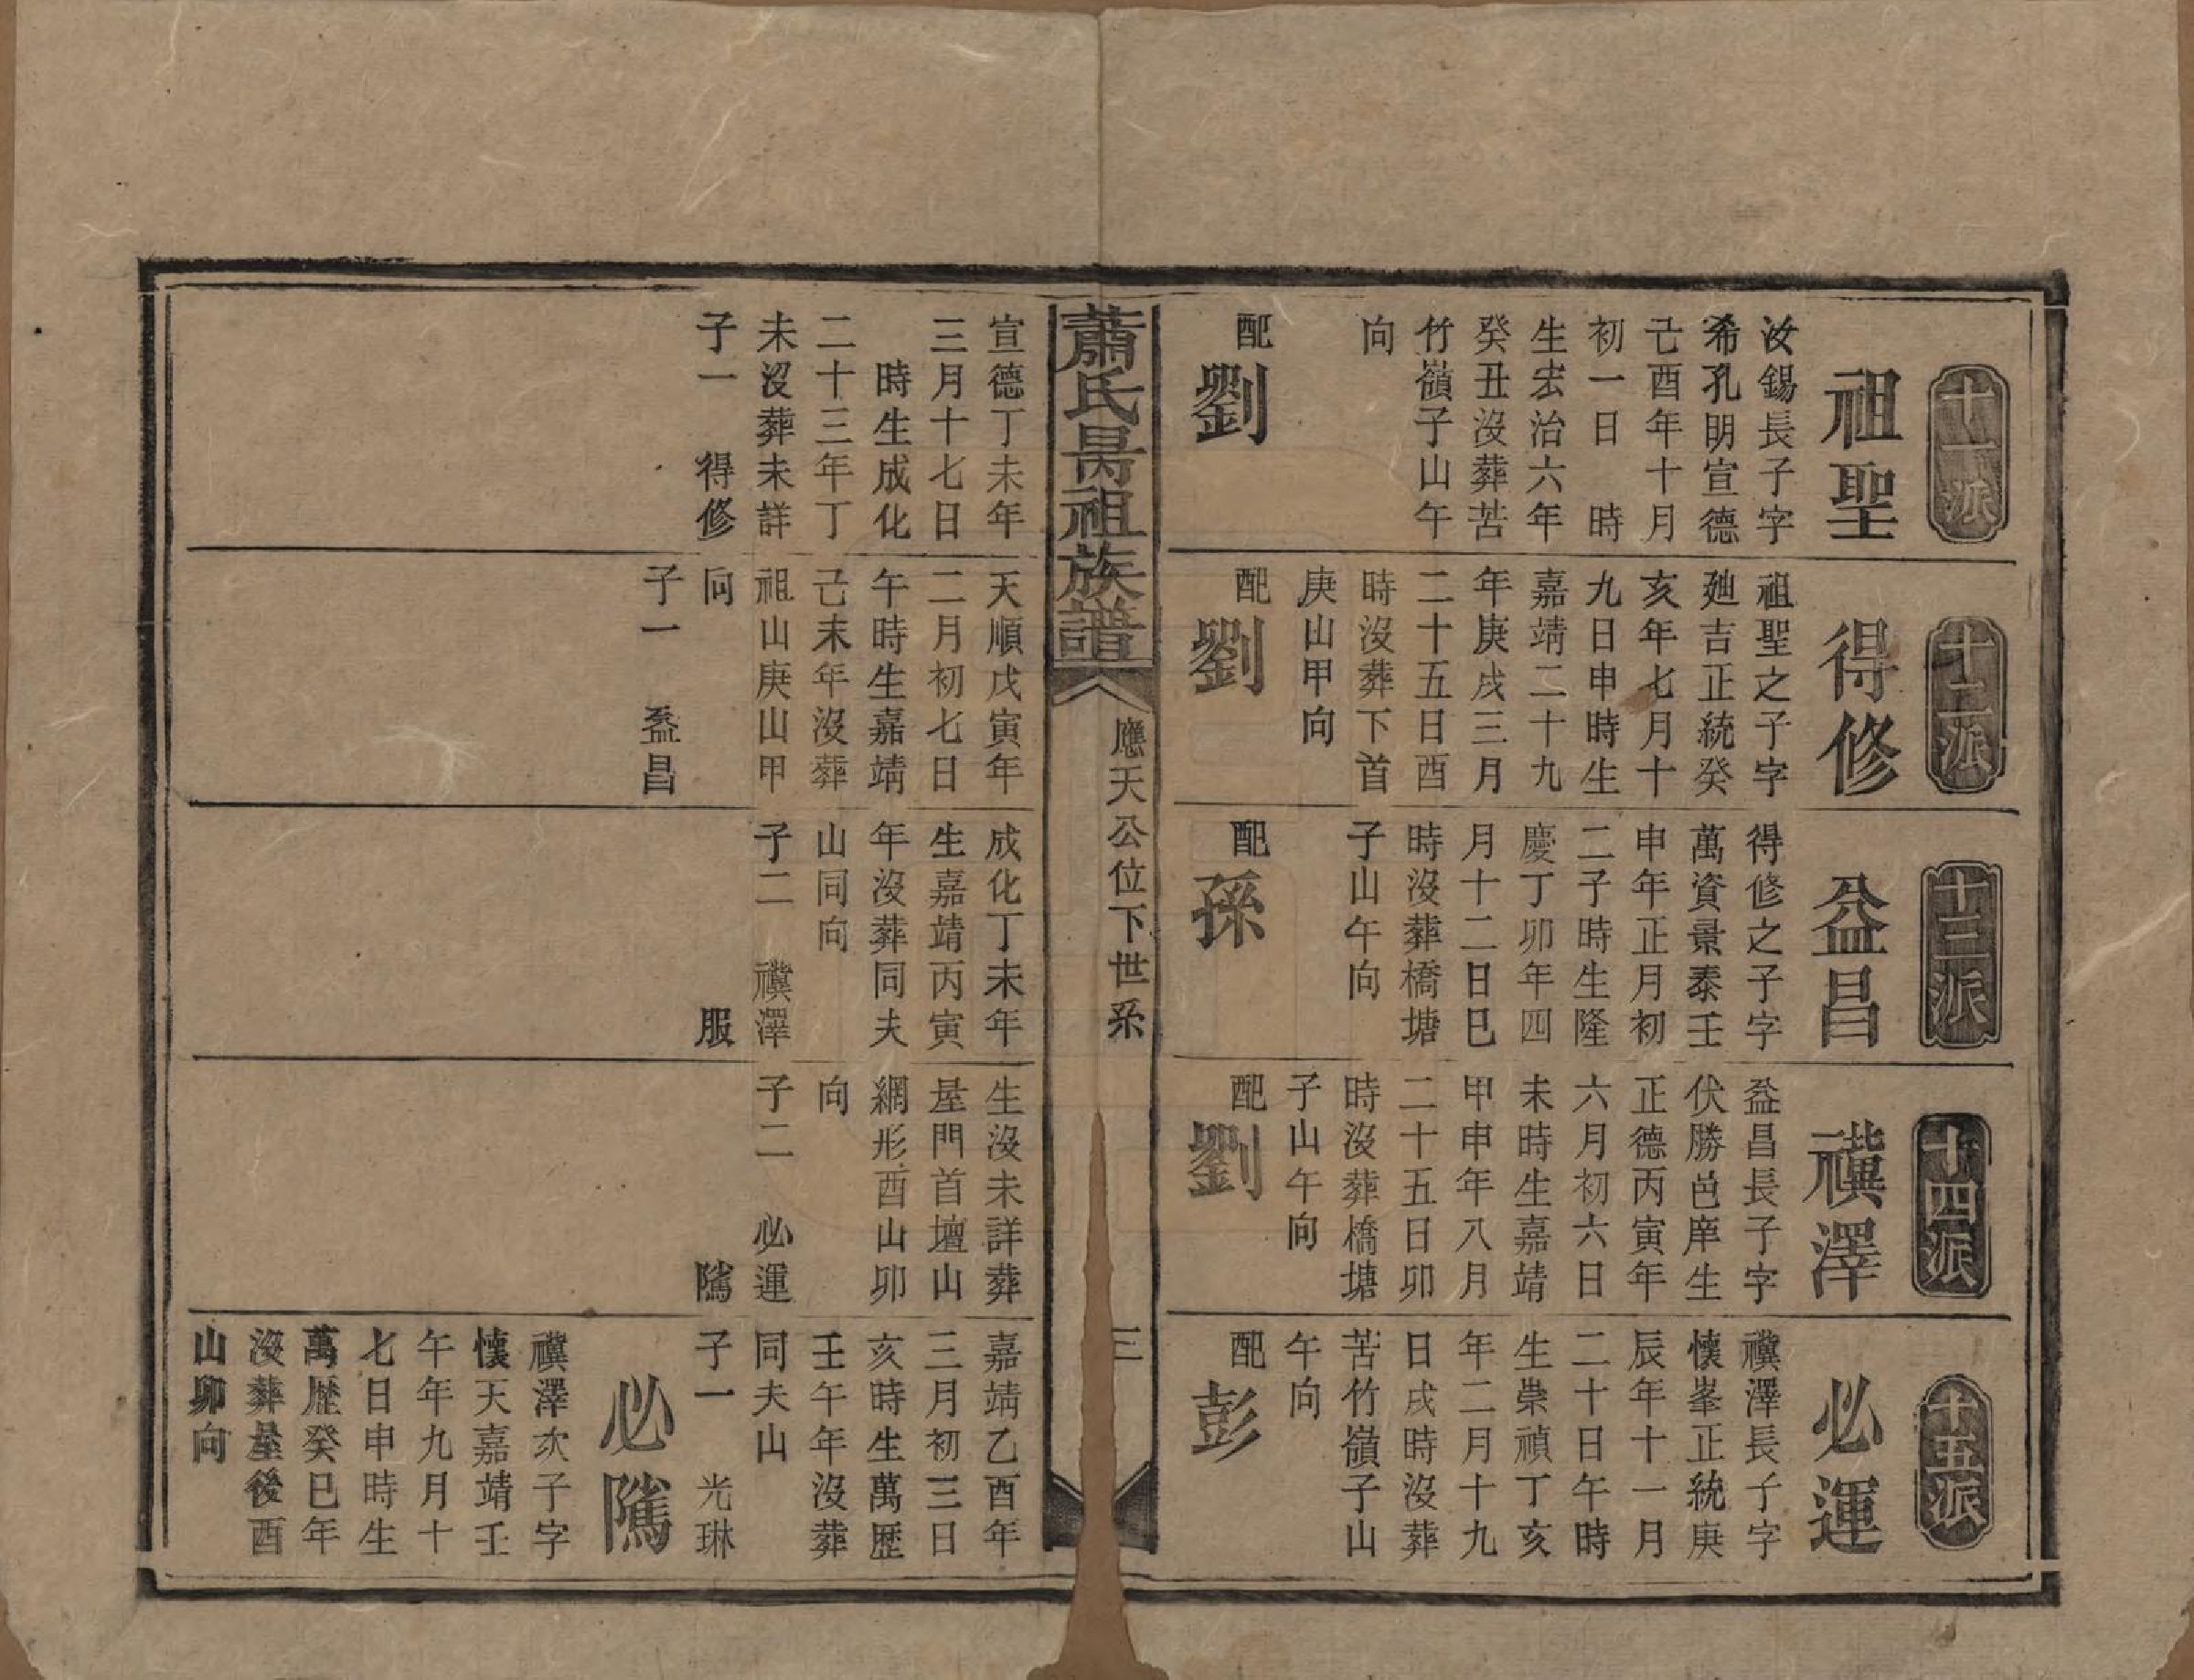 蕭氏昺祖族譜
應天公位下世系
三
十一派
祖聖
汝錫長子字
希孔明宣德
己酉年十月
初一日　時
生宏治六年
癸丑沒葬苦
竹嶺子山午
向
配劉
宣德丁未年
三月十七日
時生成化
二十三年丁
未沒葬未詳
子一　得修
十二派
得修
祖聖之子字
廸吉正統癸
亥年七月十
九日申時生
嘉靖二十九
年庚戌三月
二十五日酉
時沒葬下首
庚山甲向
配劉
天順戊寅年
二月初七日
午時生嘉靖
己未年沒葬
祖山庚山甲
向
子一　益昌
十三派
益昌
得修之子字
萬資景泰壬
申年正月初
二子時生隆
慶丁卯年四
月十二日巳
時沒葬橋塘
子山午向
配孫
成化丁未年
生嘉靖丙寅
年沒葬同夫
山同向
子二　禩澤
服
十四派
禩澤
益昌長子字
伏勝邑庠生
正德丙寅年
六月初六日
未時生嘉靖
甲申年八月
二十五日卯
時沒葬橋塘
子山午向
配劉
生沒未詳葬
屋門首壇山
網形酉山卯
向
子二　必運
隲
十五派
必運
禩澤長子字
懷峯正統庚
辰年十一月
二十日午時
生崇禎丁亥
年二月十九
日戌時沒葬
苦竹嶺子山
午向
配彭
嘉靖乙酉年
三月初三日
亥時生萬歷
壬午年沒葬
同夫山
子一　光琳
必隲
禩澤次子字
懷天嘉靖壬
午年九月十
七日申時生
萬歷癸巳年
沒葬屋後酉
山卯向